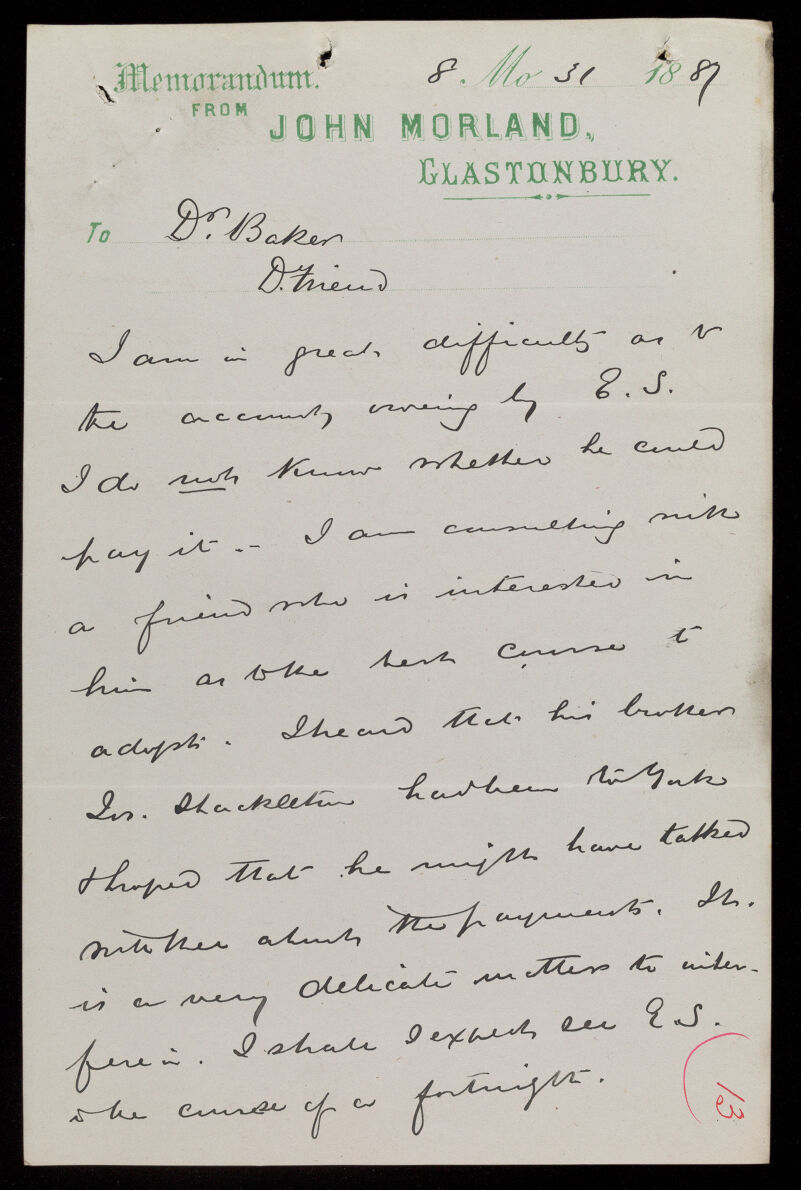 Memorandum. 8. Mo 31 1887
FROM
JOHN MORLAND,
GLASTONBURY.
To Dr. Baker
D. Friend
I am in great difficulty as to
the accounts owing by E. S.
I do not know whether he could
pay it - I am consulting with
a friend who is interested in
him as to the best course to
adopt. I heard that his brother
Jos. Shackleton had been to York
& hoped that he might have talked
with thee about the payments. It
is a very delicate matter to inter-
fere in. I shall I expect see E. S.
in the course of a fortnight.
13